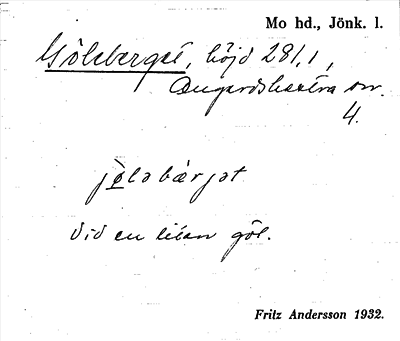 Mo hd., Jönk. l.
Göleberget, höjd 281,1,
Öugardskartra nr.
4.
jöləbärjət
Vid en liten göl.
Fritz Andersson 1932.